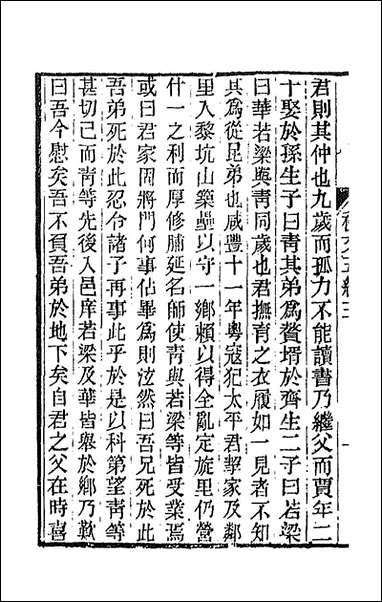 君則其仲也九歲而孤力不能讀書乃繼父而賈年二
十娶於孫生子曰靑其弟爲贅壻於齊生二子曰若梁
曰華若梁與靑同歲也君撫育之衣履如一見者不知
其爲從昆弟也咸豐十一年粵寇犯太平君挈家及鄰
里入黎坑山築壘以守一鄉賴以得全亂定旋里仍營
什一之利而厚修脯延名師使靑與若梁等皆受業焉
或曰君家固將門何事佔畢爲則泫然曰吾兄死於此
吾弟死於此忍令諸子再事此乎於是以科第望靑等
甚切已而靑等先後入邑庠若梁及華皆舉於鄉乃歎
曰吾今慰矣吾不負吾弟於地下矣自君之父在時喜